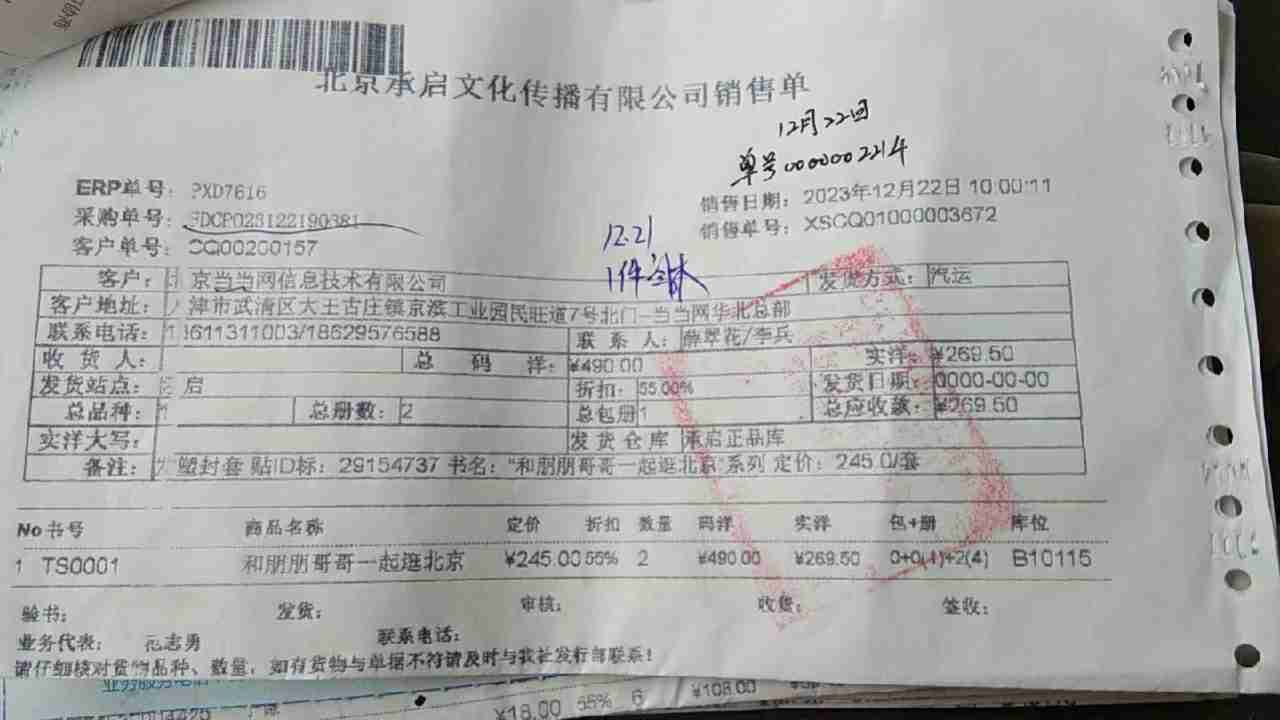 北京承启文化传播有限公司销售单
12月22回
单号0000002214
ERP单号: PXD7616
销售日期: 2023年12月22日 10:00:11
采购单号:
销售单号: XSCQ01000003672
客户单号: CQ00200157
12.21
1件
客户: 京当当网信息技术有限公司 发货方式: 汽运
客户地址: 津市武清区大王古庄镇京滨工业园民旺道7号北门-当当网华北总部
联系电话: 13611311003/18629576588 联系人: 薛翠花/李兵
收货人: 总码洋: ¥490.00 实洋: ¥269.50
发货站点: 启 折扣: 55.00% 发货日期: 0000-00-00
总品种: 1 总册数: 2 总包册 1 总应收款: ¥269.50
实洋大写: 发货仓库 承启正品库
备注: 塑封套 贴ID标: 29154737 书名: "和朋朋哥哥一起逛北京"系列 定价: 245.0/套
No 书号 商品名称 定价 折扣 数量 码洋 实洋 包+册 库位
1 TS0001 和朋朋哥哥一起逛北京 ¥245.00 55% 2 ¥490.00 ¥269.50 0+0(1)+2(4) B10115
验书: 发货: 审核: 收货: 签收:
业务代表: 范志勇 联系电话:
请仔细核对货物品种、数量, 如有货物与单据不符请及时与我社发行部联系!
¥18.00 55% 6 ¥108.00